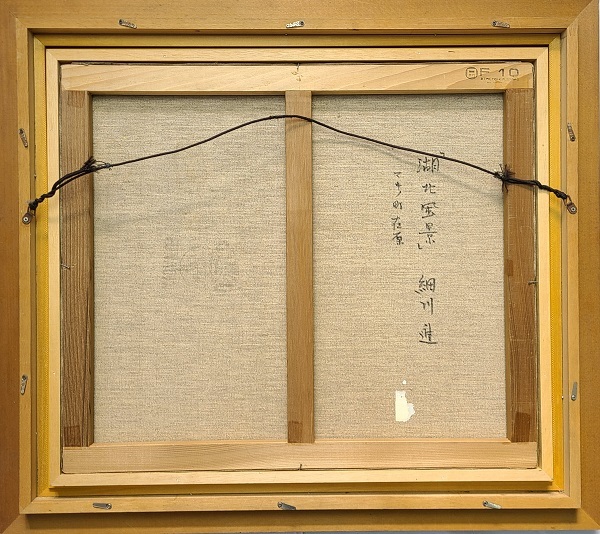 F10
「湖北風景」 細川 進
マキノ町在原